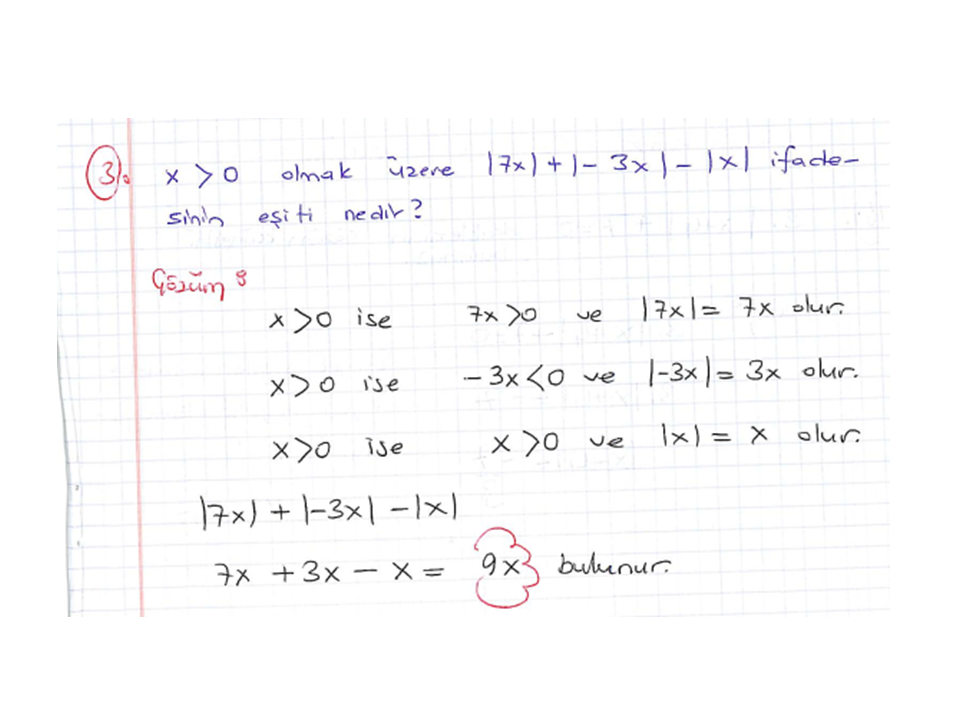 3). x > 0 olmak üzere |7x| + |- 3x| - |x| ifade-
sinin eşiti nedir?
Çözüm :
x>0 ise 7x >0 ve |7x|= 7x olur.
x>0 ise -3x<0 ve |-3x|= 3x olur.
x>0 ise x >0 ve |x|= x olur.
|7x| + |-3x| - |x|
7x + 3x - x = 9x bulunur.